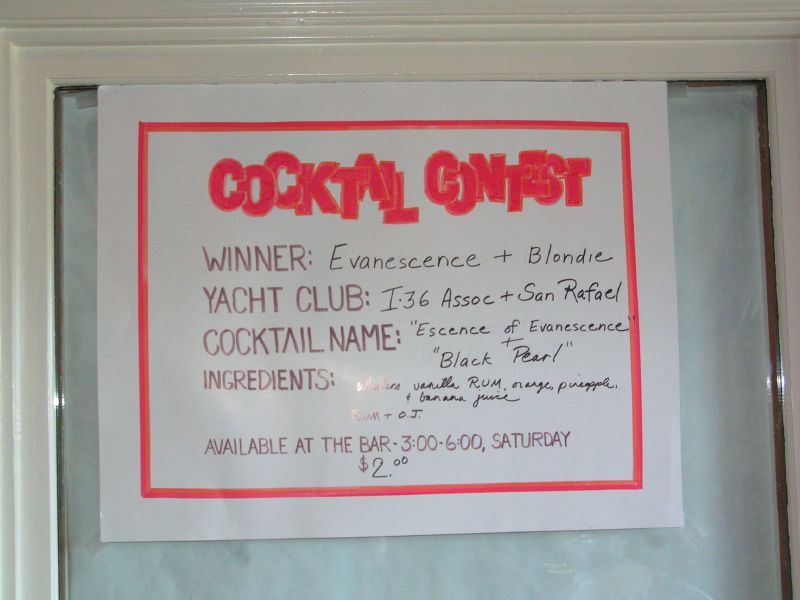 COCKTAIL CONTEST
WINNER: Evanescence + Blondie
YACHT CLUB: I-36 Assoc + San Rafael
COCKTAIL NAME: "Escence of Evanescence"
+
"Black Pearl"
INGREDIENTS: vanilla RUM, orange, pineapple,
+ banana juice
RUM + O.J.
AVAILABLE AT THE BAR - 3:00-6:00, SATURDAY
$2.00